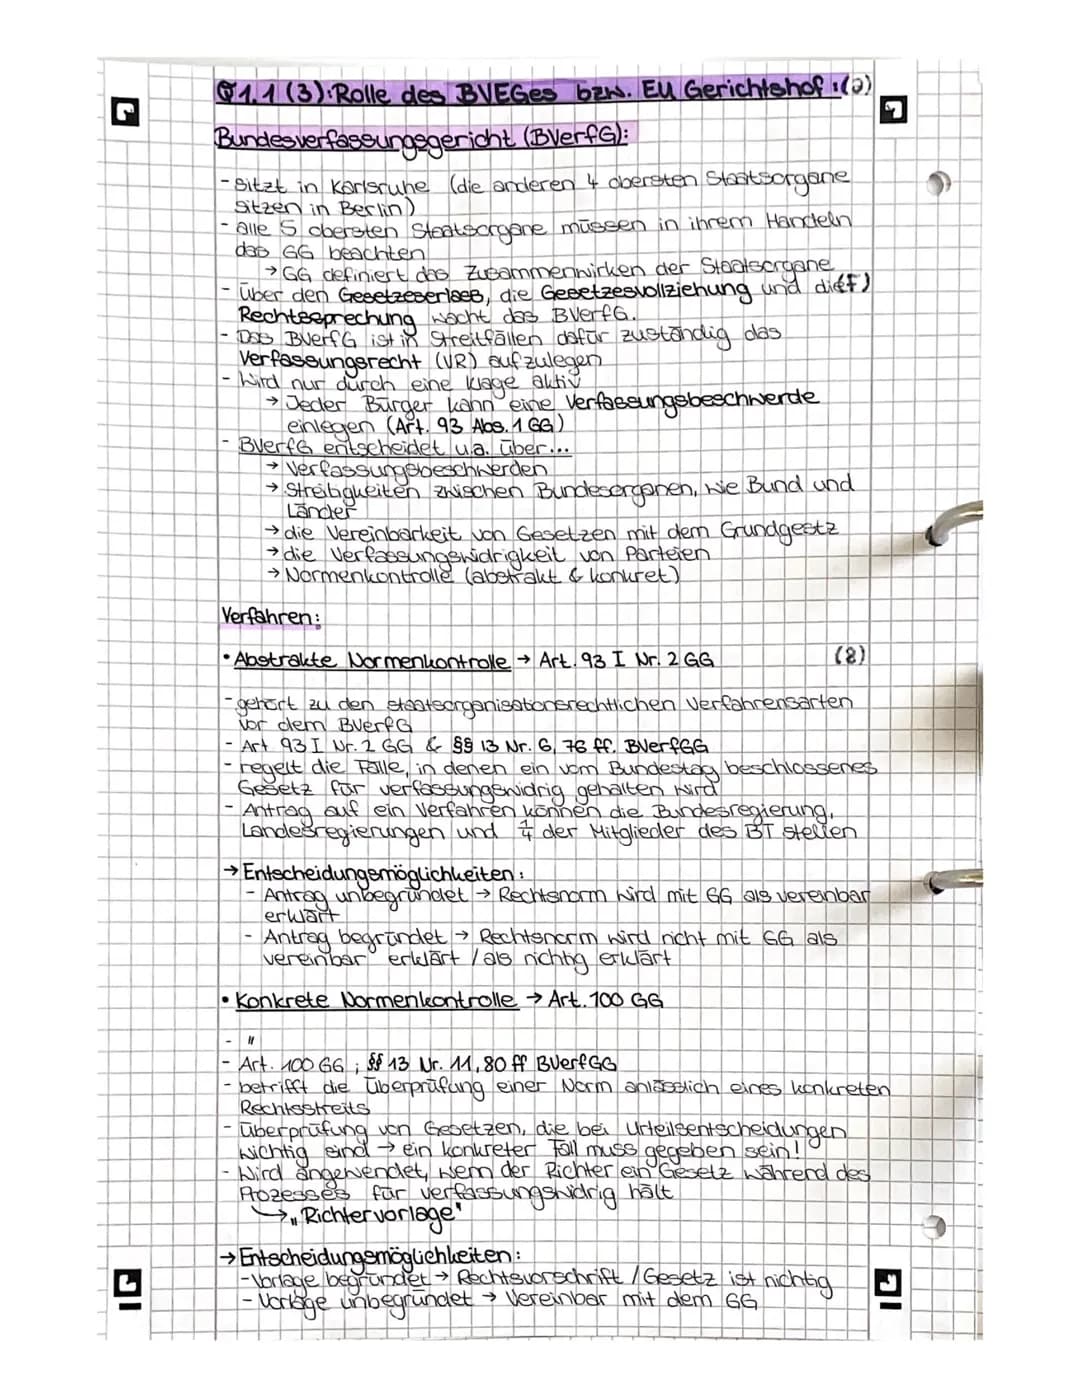 Q1.1 (3): Rolle des BVEGes bzw. EU Gerichtshof :(2)
Bundesverfassungsgericht (BVerfG):
- sitzt in Karlsruhe (die anderen 4 obersten Staatsorgane
sitzen in Berlin)
- alle 5 obersten Staatsorgane müssen in ihrem Handeln
das GG beachten
→ GG definiert das Zusammenwirken der Staatsorgane
- über den Gesetzeserlass, die Gesetzesvollziehung und die (F)
Rechtssprechung wacht das BVerfG.
- Das BVerfG ist in Streitfällen dafür zuständig das
Verfassungsrecht (VR) aufzulegen
- Wird nur durch eine Klage aktiv
→ Jeder Bürger kann eine Verfassungsbeschwerde
einlegen (Art. 93 Abs. 1 GG)
- BVerfG entscheidet u.a. über...
→ Verfassungsbeschwerden
→ Streitigkeiten zwischen Bundesorganen, wie Bund und
Länder
→ die Vereinbarkeit von Gesetzen mit dem Grundgestz
→ die Verfassungswidrigkeit von Parteien
→ Normenkontrolle (abstrakt & konkret)
Verfahren:
• Abstrakte Normenkontrolle → Art. 93 I Nr. 2 GG (8)
- gehört zu den staatsorganisationsrechtlichen Verfahrensarten
vor dem BVerfG
- Art 93 I Nr. 2 GG & §§ 13 Nr. 6, 76 ff. BVerfGG
- regelt die Fälle, in denen ein vom Bundestag beschlossenes
Gesetz für verfassungswidrig gehalten wird
- Antrag auf ein Verfahren können die Bundesregierung,
Landesregierungen und 1/4 der Mitglieder des BT stellen
→ Entscheidungsmöglichkeiten:
- Antrag unbegründet → Rechtsnorm wird mit GG als vereinbar
erklärt
- Antrag begründet → Rechtsnorm wird nicht mit GG als
vereinbar erklärt / als nichtig erklärt
• Konkrete Normenkontrolle → Art. 100 GG
- "
- Art. 100 GG ; §§ 13 Nr. 11, 80 ff BVerfGG
- betrifft die Überprüfung einer Norm anlässlich eines konkreten
Rechtsstreits
- Überprüfung von Gesetzen, die bei Urteilsentscheidungen
wichtig sind → ein konkreter Fall muss gegeben sein!
- Wird angewendet, wenn der Richter ein Gesetz während des
Prozesses für verfassungswidrig hält
→ „Richtervorlage"
→ Entscheidungsmöglichkeiten:
- Vorlage begründet → Rechtsvorschrift / Gesetz ist nichtig
- Vorlage unbegründet → Vereinbar mit dem GG